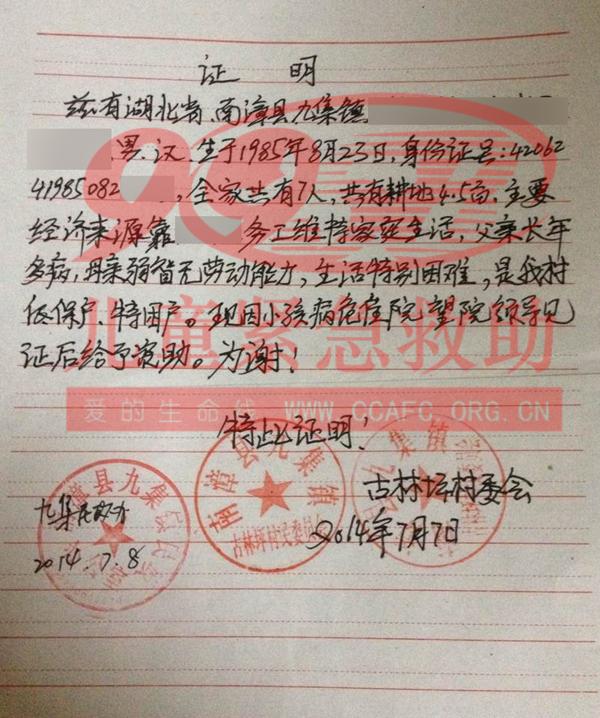 证 明
兹有湖北省、南漳县九集镇
男、汉、生于1985年8月23日,身份证号:42062
41985082 ,全家共有7人,共有耕地4.5亩、主要
经济来源靠 务工维持家庭生活,父亲长年
多病,母亲弱智无劳动能力,生活特别困难,是我村
低保户、特困户。现因小孩病危住院,望院领导见
证后给予资助。为谢!
儿童紧急救助
爱的生命线 WWW.CCAFC.ORG.CN
特此证明!
古林坪村委会
2014年7月7日
九集民政办
2014.7.8
南漳县九集镇
古林坪村民委员会
漳县九集镇
九集镇